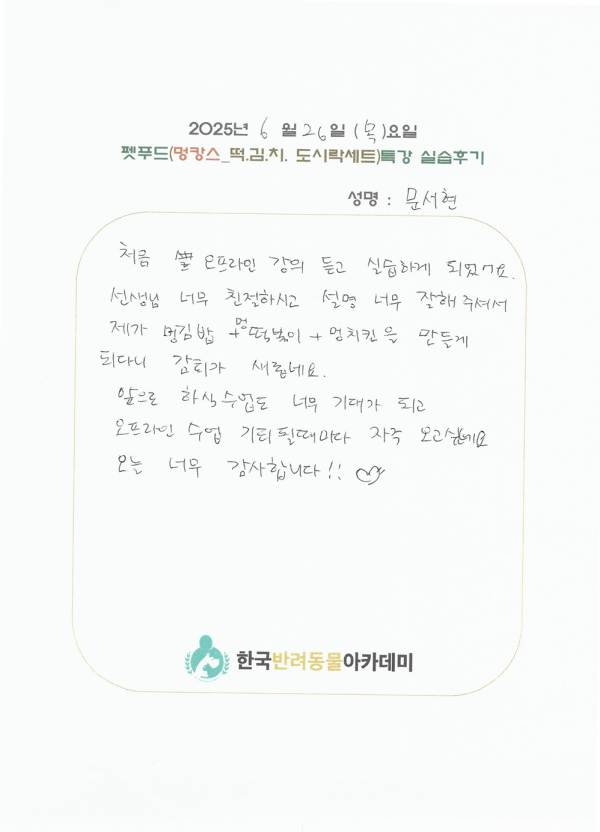 2025년 6 월 26일 (목)요일
펫푸드(멍캉스_떡.김.치. 도시락세트)특강 실습후기
성명 : 문서현
처음 오프라인 강의 듣고 실습하게 되었거요.
선생님 너무 친절하시고 설명 너무 잘해 주셔서
제가 멍김밥 + 멍떡볶이 + 멍치킨을 만들게
되다니 감회가 새롭네요.
앞으로 화식수업도 너무 기대가 되고
오프라인 수업 기회될때마다 자주 오고싶네요
오늘 너무 감사합니다!!
한국반려동물아카데미